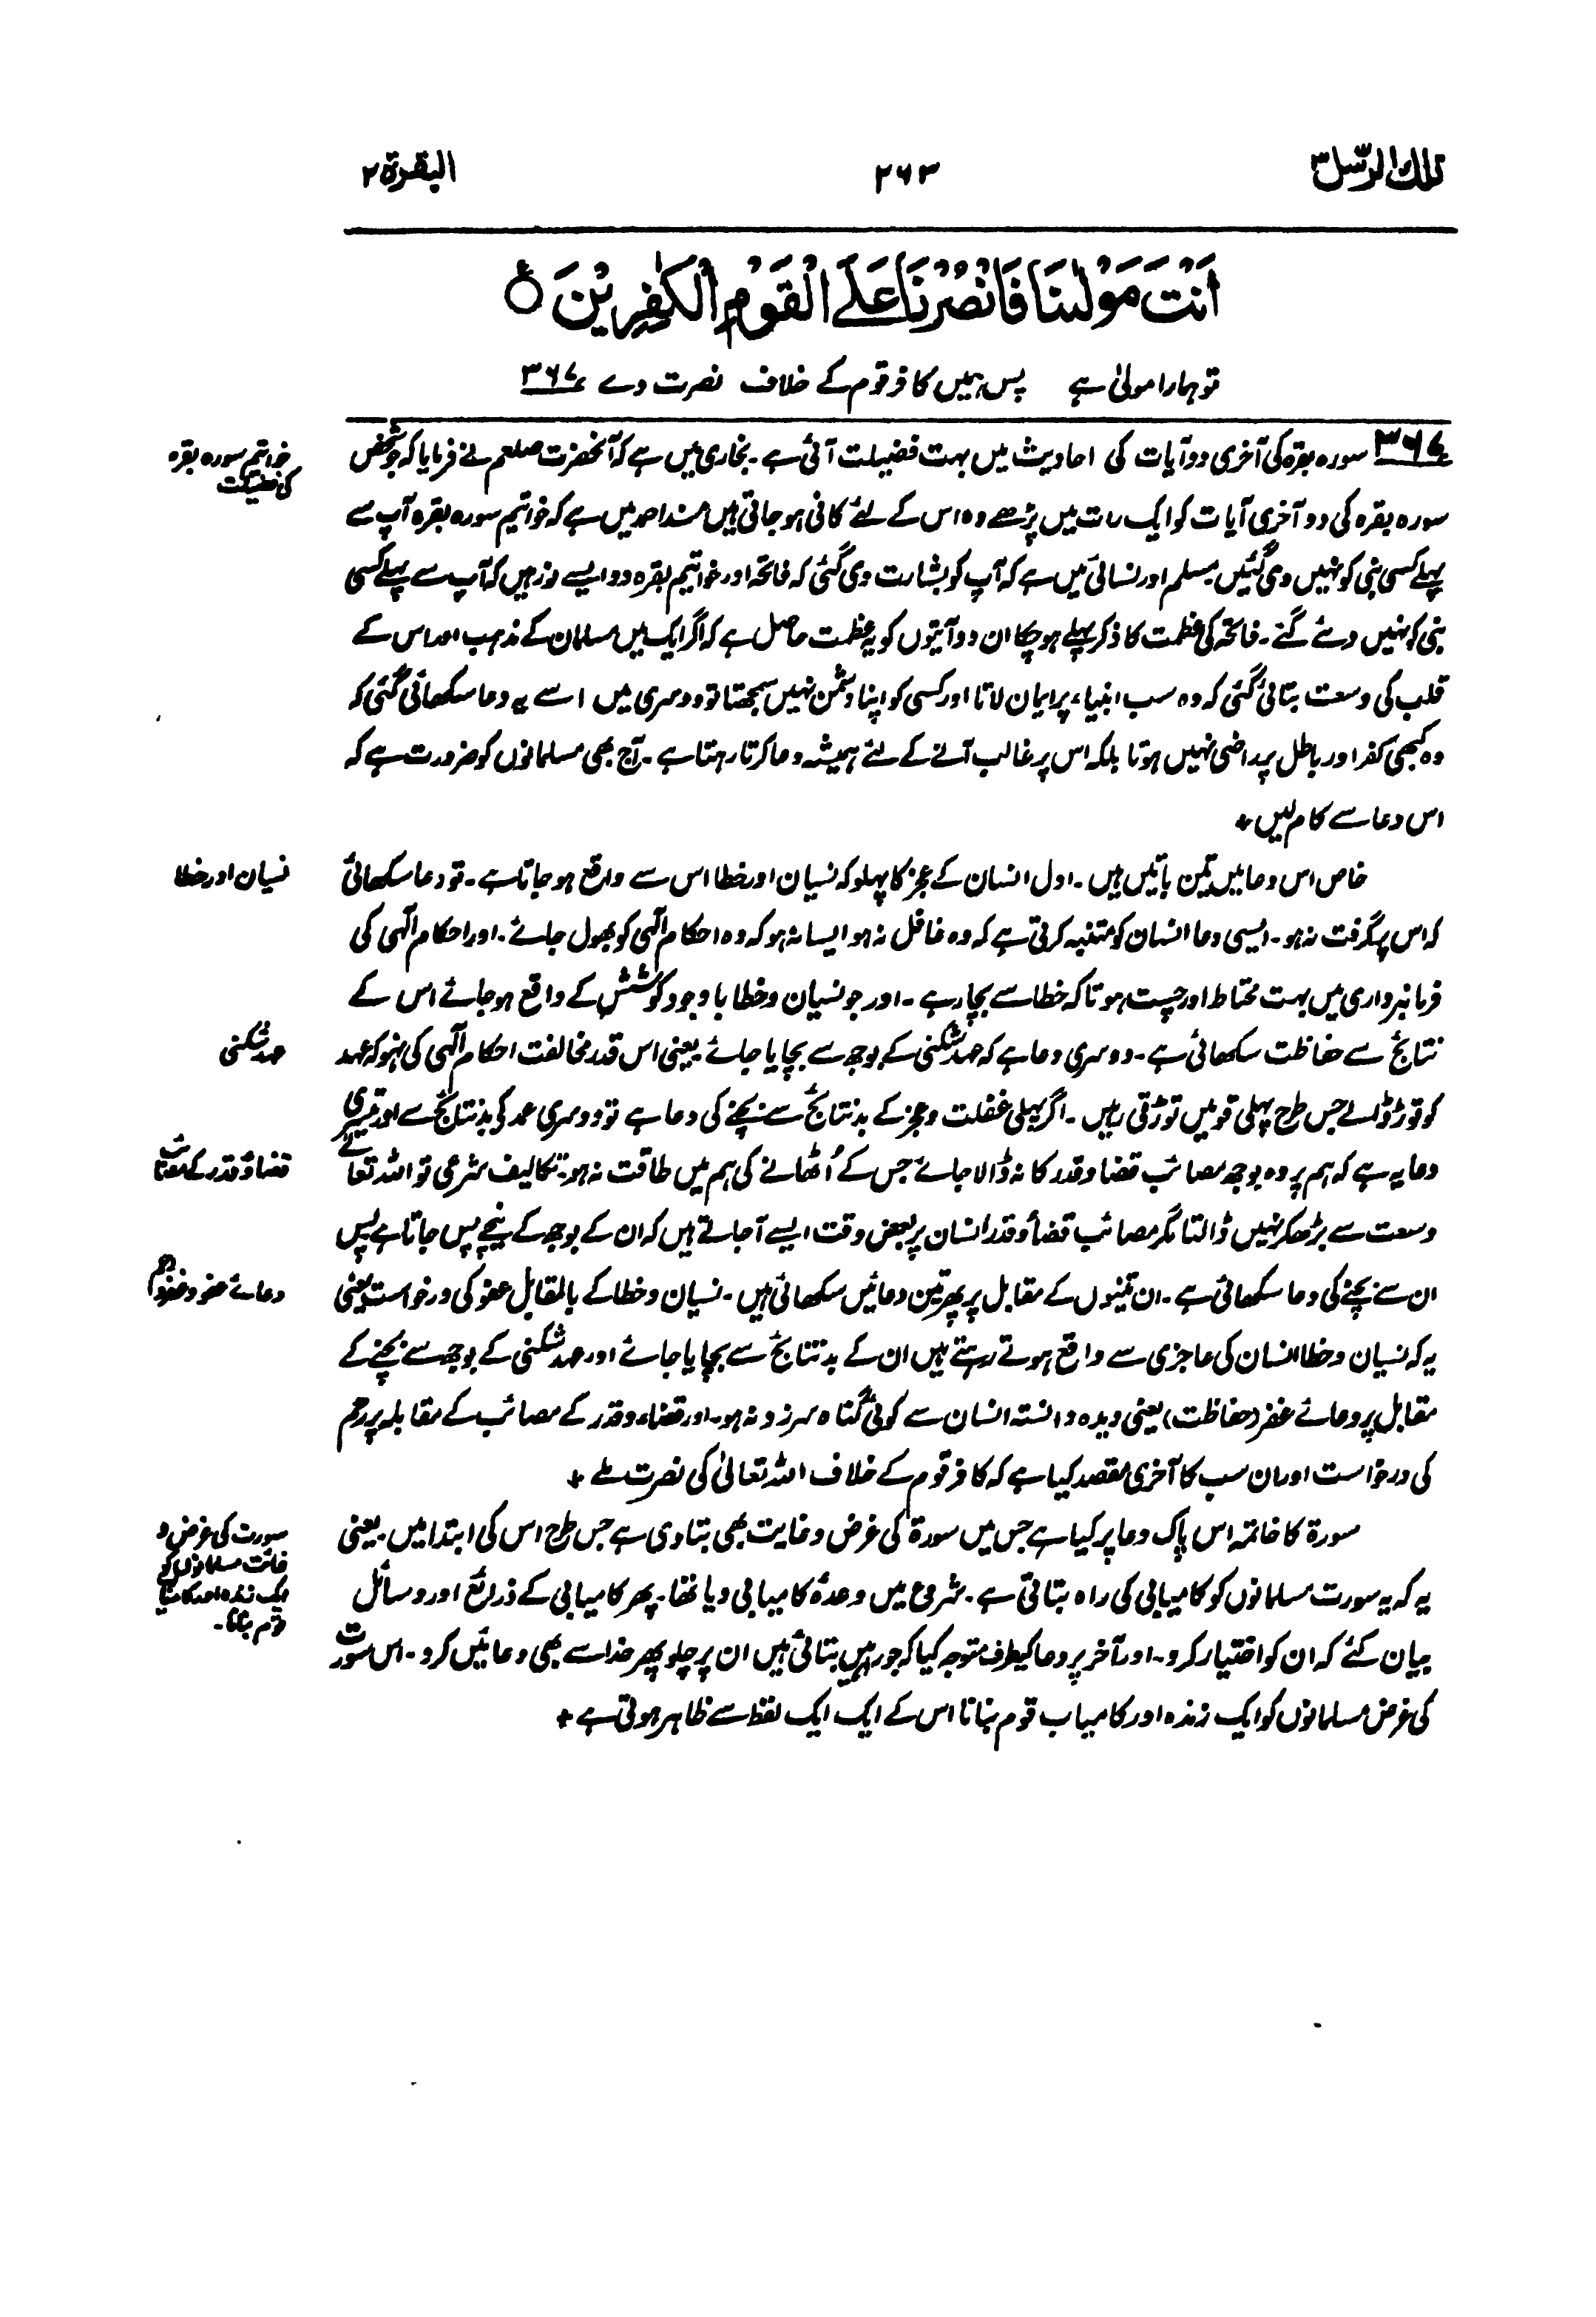 تلك الرّسل ٣
٢٦٣
البقرة ٢
اَنْتَ مَوْلٰىنَا فَانْصُرْنَا عَلَى الْقَوْمِ الْكٰفِرِيْنَ ۝ ع
تو ہمارا مولیٰ ہے پس ہمیں کافر قوم کے خلاف نصرت دے ۳۶۷
۳۶۷ سورہ بقرہ کی آخری دو آیات کی احادیث میں بہت فضیلت آئی ہے۔ بخاری میں ہے کہ آنحضرت صلعم نے فرمایا کہ جو شخص
خواتیم سورہ بقرہ
کی فضیلت
سورہ بقرہ کی دو آخری آیات کو ایک رات میں پڑھے وہ اس کے لئے کافی ہو جاتی ہیں مسند احمد میں ہے کہ خواتیم سورہ بقرہ آپ سے
پہلے کسی نبی کو نہیں دی گئیں۔ مسلم اور نسائی میں ہے کہ آپ کو بشارت دی گئی کہ فاتحہ اور خواتیم بقرہ دو ایسے نور ہیں کہ آپ سے پہلے کسی
نبی کو نہیں دئے گئے۔ فاتحہ کی عظمت کا ذکر پہلے ہو چکا ان دو آیتوں کو یہ عظمت حاصل ہے کہ اگر ایک میں مسلمان کے مذہب اور اس کے
قلب کی وسعت بتائی گئی کہ وہ سب انبیاء پر ایمان لاتا اور کسی کو اپنا دشمن نہیں سمجھتا تو دوسری میں اسے یہ دعا سکھائی گئی کہ
وہ کبھی کفر اور باطل پر راضی نہیں ہوتا بلکہ اس پر غالب آنے کے لئے ہمیشہ دعا کرتا رہتا ہے۔ آج بھی مسلمانوں کو ضرورت ہے کہ
اس دعا سے کام لیں +
خاص اس دعا میں تین باتیں ہیں۔ اول انسان کے عجز کا پہلو کہ نسیان اور خطا اس سے واقع ہو جاتا ہے۔ تو دعا سکھائی
نسیان اور خطا
کہ اس پر گرفت نہ ہو۔ ایسی دعا انسان کو متنبہ کرتی ہے کہ وہ غافل نہ ہو ایسا نہ ہو کہ وہ احکام الٰہی کو بھول جائے۔ اور احکام الٰہی کی
فرمانبرداری میں بہت محتاط اور چست ہو تاکہ خطا سے بچا رہے۔ اور جو نسیان و خطا باوجود کوشش کے واقع ہو جائے اس کے
نتائج سے حفاظت سکھائی ہے۔ دوسری دعا ہے کہ عہد شکنی کے بوجھ سے بچایا جائے یعنی اس قدر مخالفت احکام الٰہی کی نہ ہو کہ عہد
عہد شکنی
کو توڑ ڈالے جس طرح پہلی قومیں توڑتی رہیں۔ اگر پہلی غفلت و عجز کے بد نتائج سے بچنے کی دعا ہے تو دوسری عمد کی بد نتائج سے اور تیسری
دعا یہ ہے کہ ہم پر وہ بوجھ مصائب قضا و قدر کا نہ ڈالا جائے جس کے اُٹھانے کی ہم میں طاقت نہ ہو۔ تکالیف شرعی تو اللہ تعالےٰ
قضاؤ قدر کے مصائب
وسعت سے بڑھکر نہیں ڈالتا مگر مصائب قضاؤ قدر انسان پر بعض وقت ایسے آجاتے ہیں کہ ان کے بوجھ کے نیچے پس جاتا ہے پس
ان سے بچنے کی دعا سکھائی ہے۔ ان تینوں کے مقابل پر پھر تین دعائیں سکھائی ہیں۔ نسیان و خطا کے بالمقابل عفو کی درخواست یعنی
دعائے عفو و غفر و رحم
یہ کہ نسیان و خطا انسان کی عاجزی سے واقع ہوتے رہتے ہیں ان کے بد نتائج سے بچایا جائے اور عہد شکنی کے بوجھ سے بچنے کے
مقابل پر دعائے غفر (حفاظت) یعنی دیدہ دانستہ انسان سے کوئی گناہ سرزد نہ ہو۔ اور قضاء و قدر کے مصائب کے مقابلہ پر رحم
کی درخواست اور ان سب کا آخری مقصد کیا ہے کہ کافر قوم کے خلاف اللہ تعالیٰ کی نصرت ملے +
سورۃ کا خاتمہ اس پاک دعا پر کیا ہے جس میں سورۃ کی غرض و غایت بھی بتا دی ہے جس طرح اس کی ابتدا میں۔ یعنی
سورت کی غرض و
غائت مسلمانوں کو
ایک زندہ اور کامیاب
قوم بنانا۔
یہ کہ یہ سورت مسلمانوں کو کامیابی کی راہ بتاتی ہے۔ شروع میں وعدۂ کامیابی دیا تھا۔ پھر کامیابی کے ذرائع اور وسائل
بیان کئے کہ ان کو اختیار کرو۔ اور آخر پر دعا کیطرف متوجہ کیا کہ جو راہیں بتائی ہیں ان پر چلو پھر خدا سے بھی دعائیں کرو۔ اس سورت
کی غرض مسلمانوں کو ایک زندہ اور کامیاب قوم بنانا اس کے ایک ایک لفظ سے ظاہر ہوتی ہے +